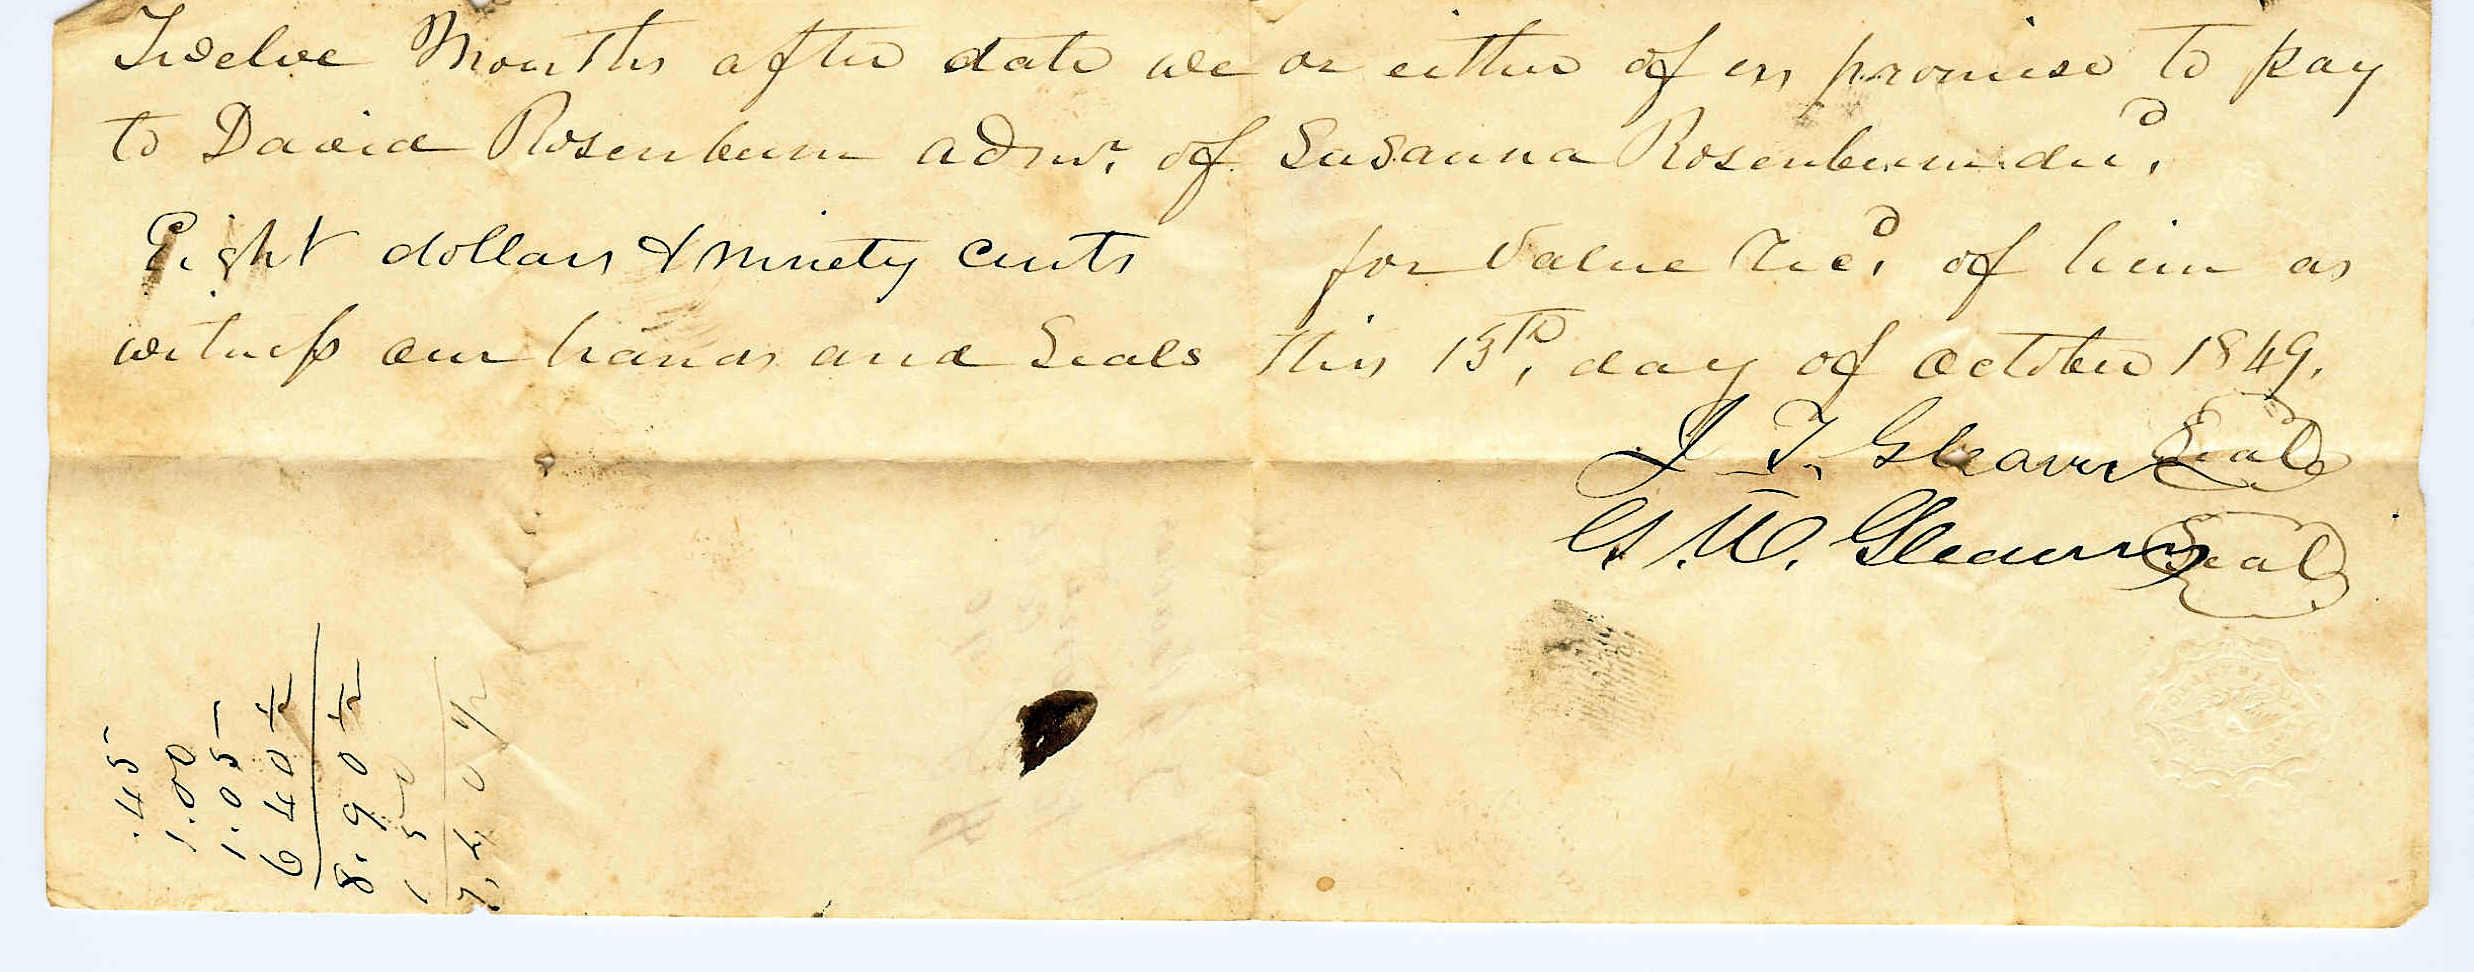 Twelve Months after date we or either of us promise to pay
to David Rosenbum admr. of Susanna Rosenbum decd.
Eight dollars & ninety cents for Value Recd. of him as
witness our hands and Seals this 15th. day of October 1849.
J. T. Gleaves Seal
G. W. Gleaves Seal
.45
1.00
1.05
6 40 1/2
8.90 1/2
1 50
7.40 1/2